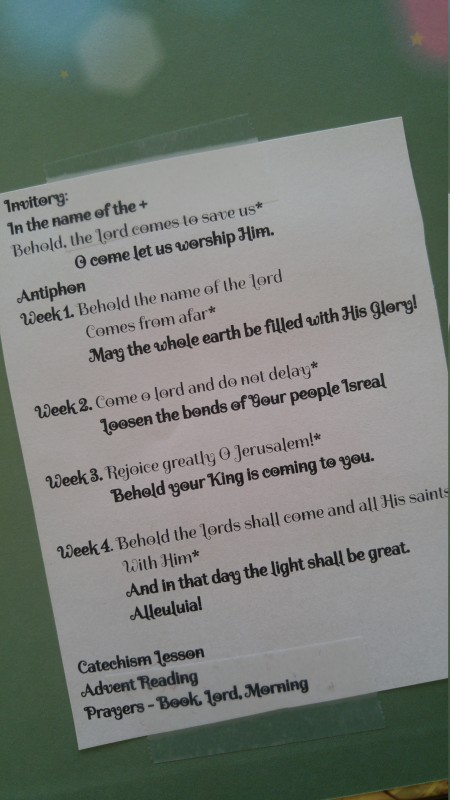 Invitory:
In the name of the +
Behold, the Lord comes to save us*
O come let us worship Him.
Antiphon
Week 1. Behold the name of the Lord
Comes from afar*
May the whole earth be filled with His Glory!
Week 2. Come o lord and do not delay*
Loosen the bonds of Your people Isreal
Week 3. Rejoice greatly O Jerusalem!*
Behold your King is coming to you.
Week 4. Behold the Lords shall come and all His saints
With Him*
And in that day the light shall be great.
Alleuluia!
Catechism Lesson
Advent Reading
Prayers - Book, Lord, Morning